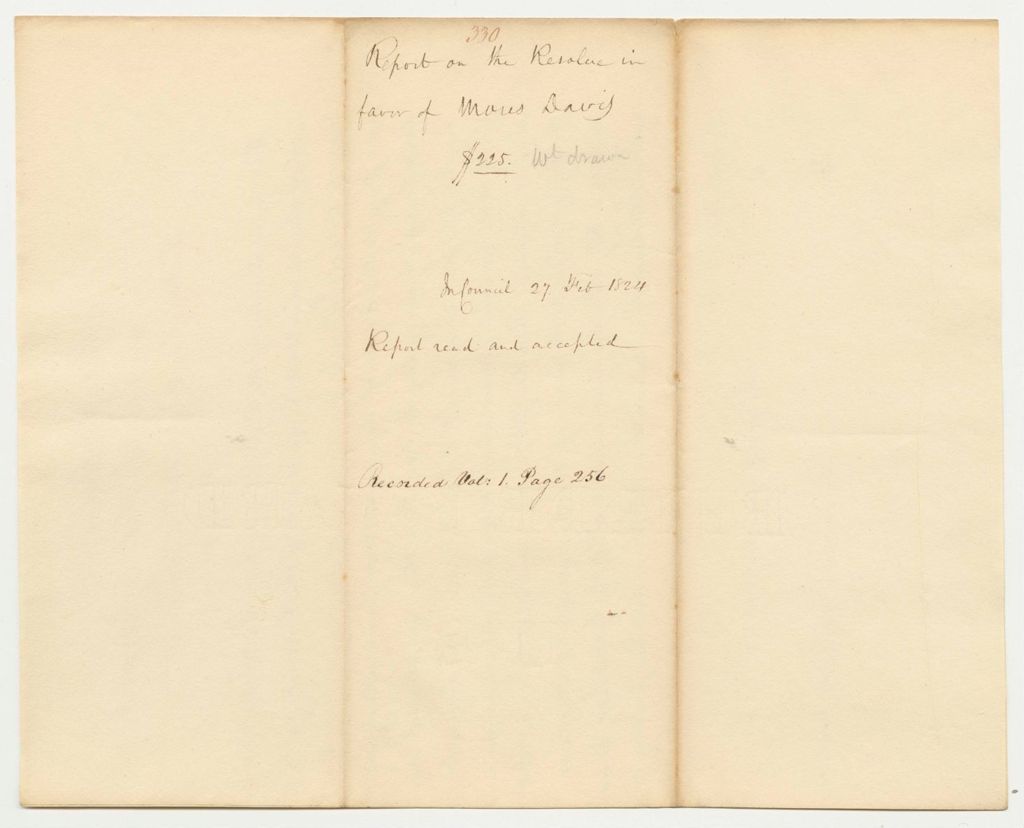 330
Report on the Resolve in
favor of Moses Davis
$225. Wt drawn
In Council 27 Feb 1824
Report read and accepted
Recorded Vol: 1. Page 256